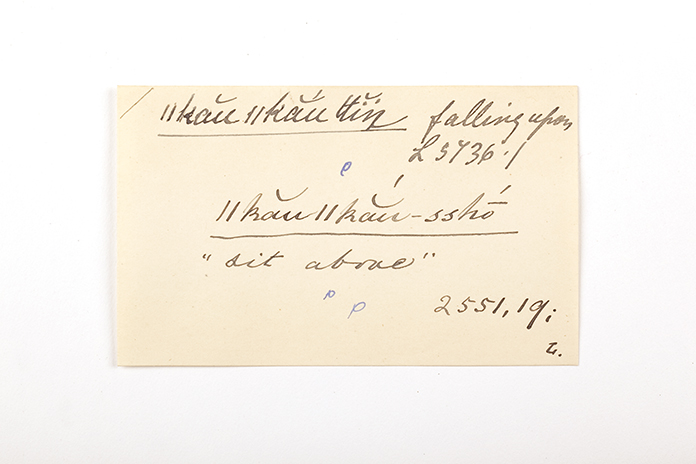 ǁkăuǁkắu ttĭŋ falling upon
L 5736.1
ǁkăuǁkắu-sshó
"sit above"
2551,19;
L.